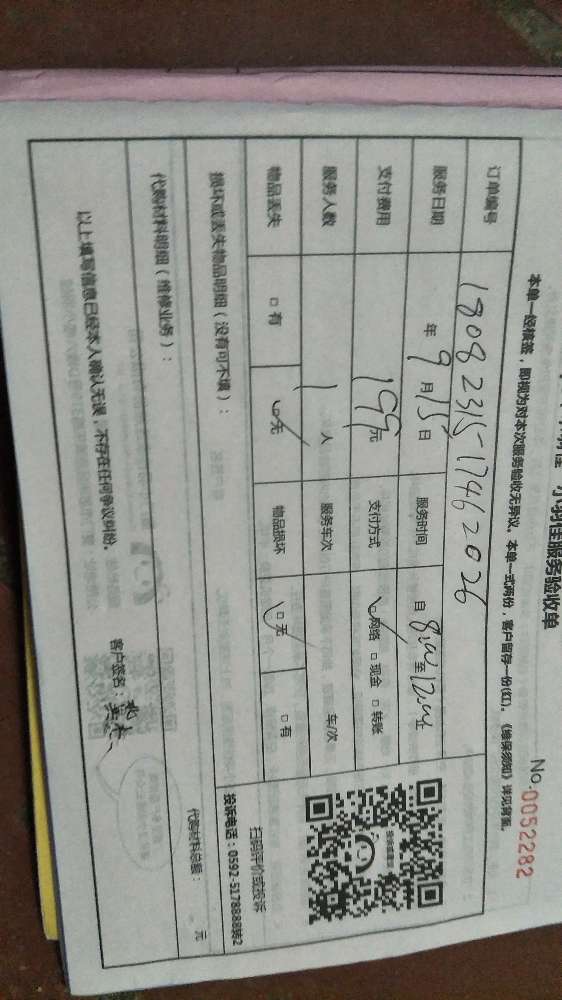 小羽佳服务验收单
No.0052282
本单一经核签，即视为对本次服务验收无异议。本单一式两份，客户留存一份(红)。《维保须知》详见背面。
订单编号 18082315-17462026
服务日期 年9月15日 服务时间 自8:00至12:00止
支付费用 199元 支付方式 ☑网络 □现金 □转账
服务人数 1人 服务车次 车/次
物品丢失 □有 ☑无 物品损坏 ☑无 □有
扫码评价或投诉
投诉电话：0592-5178888转2
损坏或丢失物品明细（没有可不填）：
代购材料明细（维修业务）：
代购材料总额： 元
以上填写信息已经本人确认无误，不存在任何争议纠纷。
客户签名：